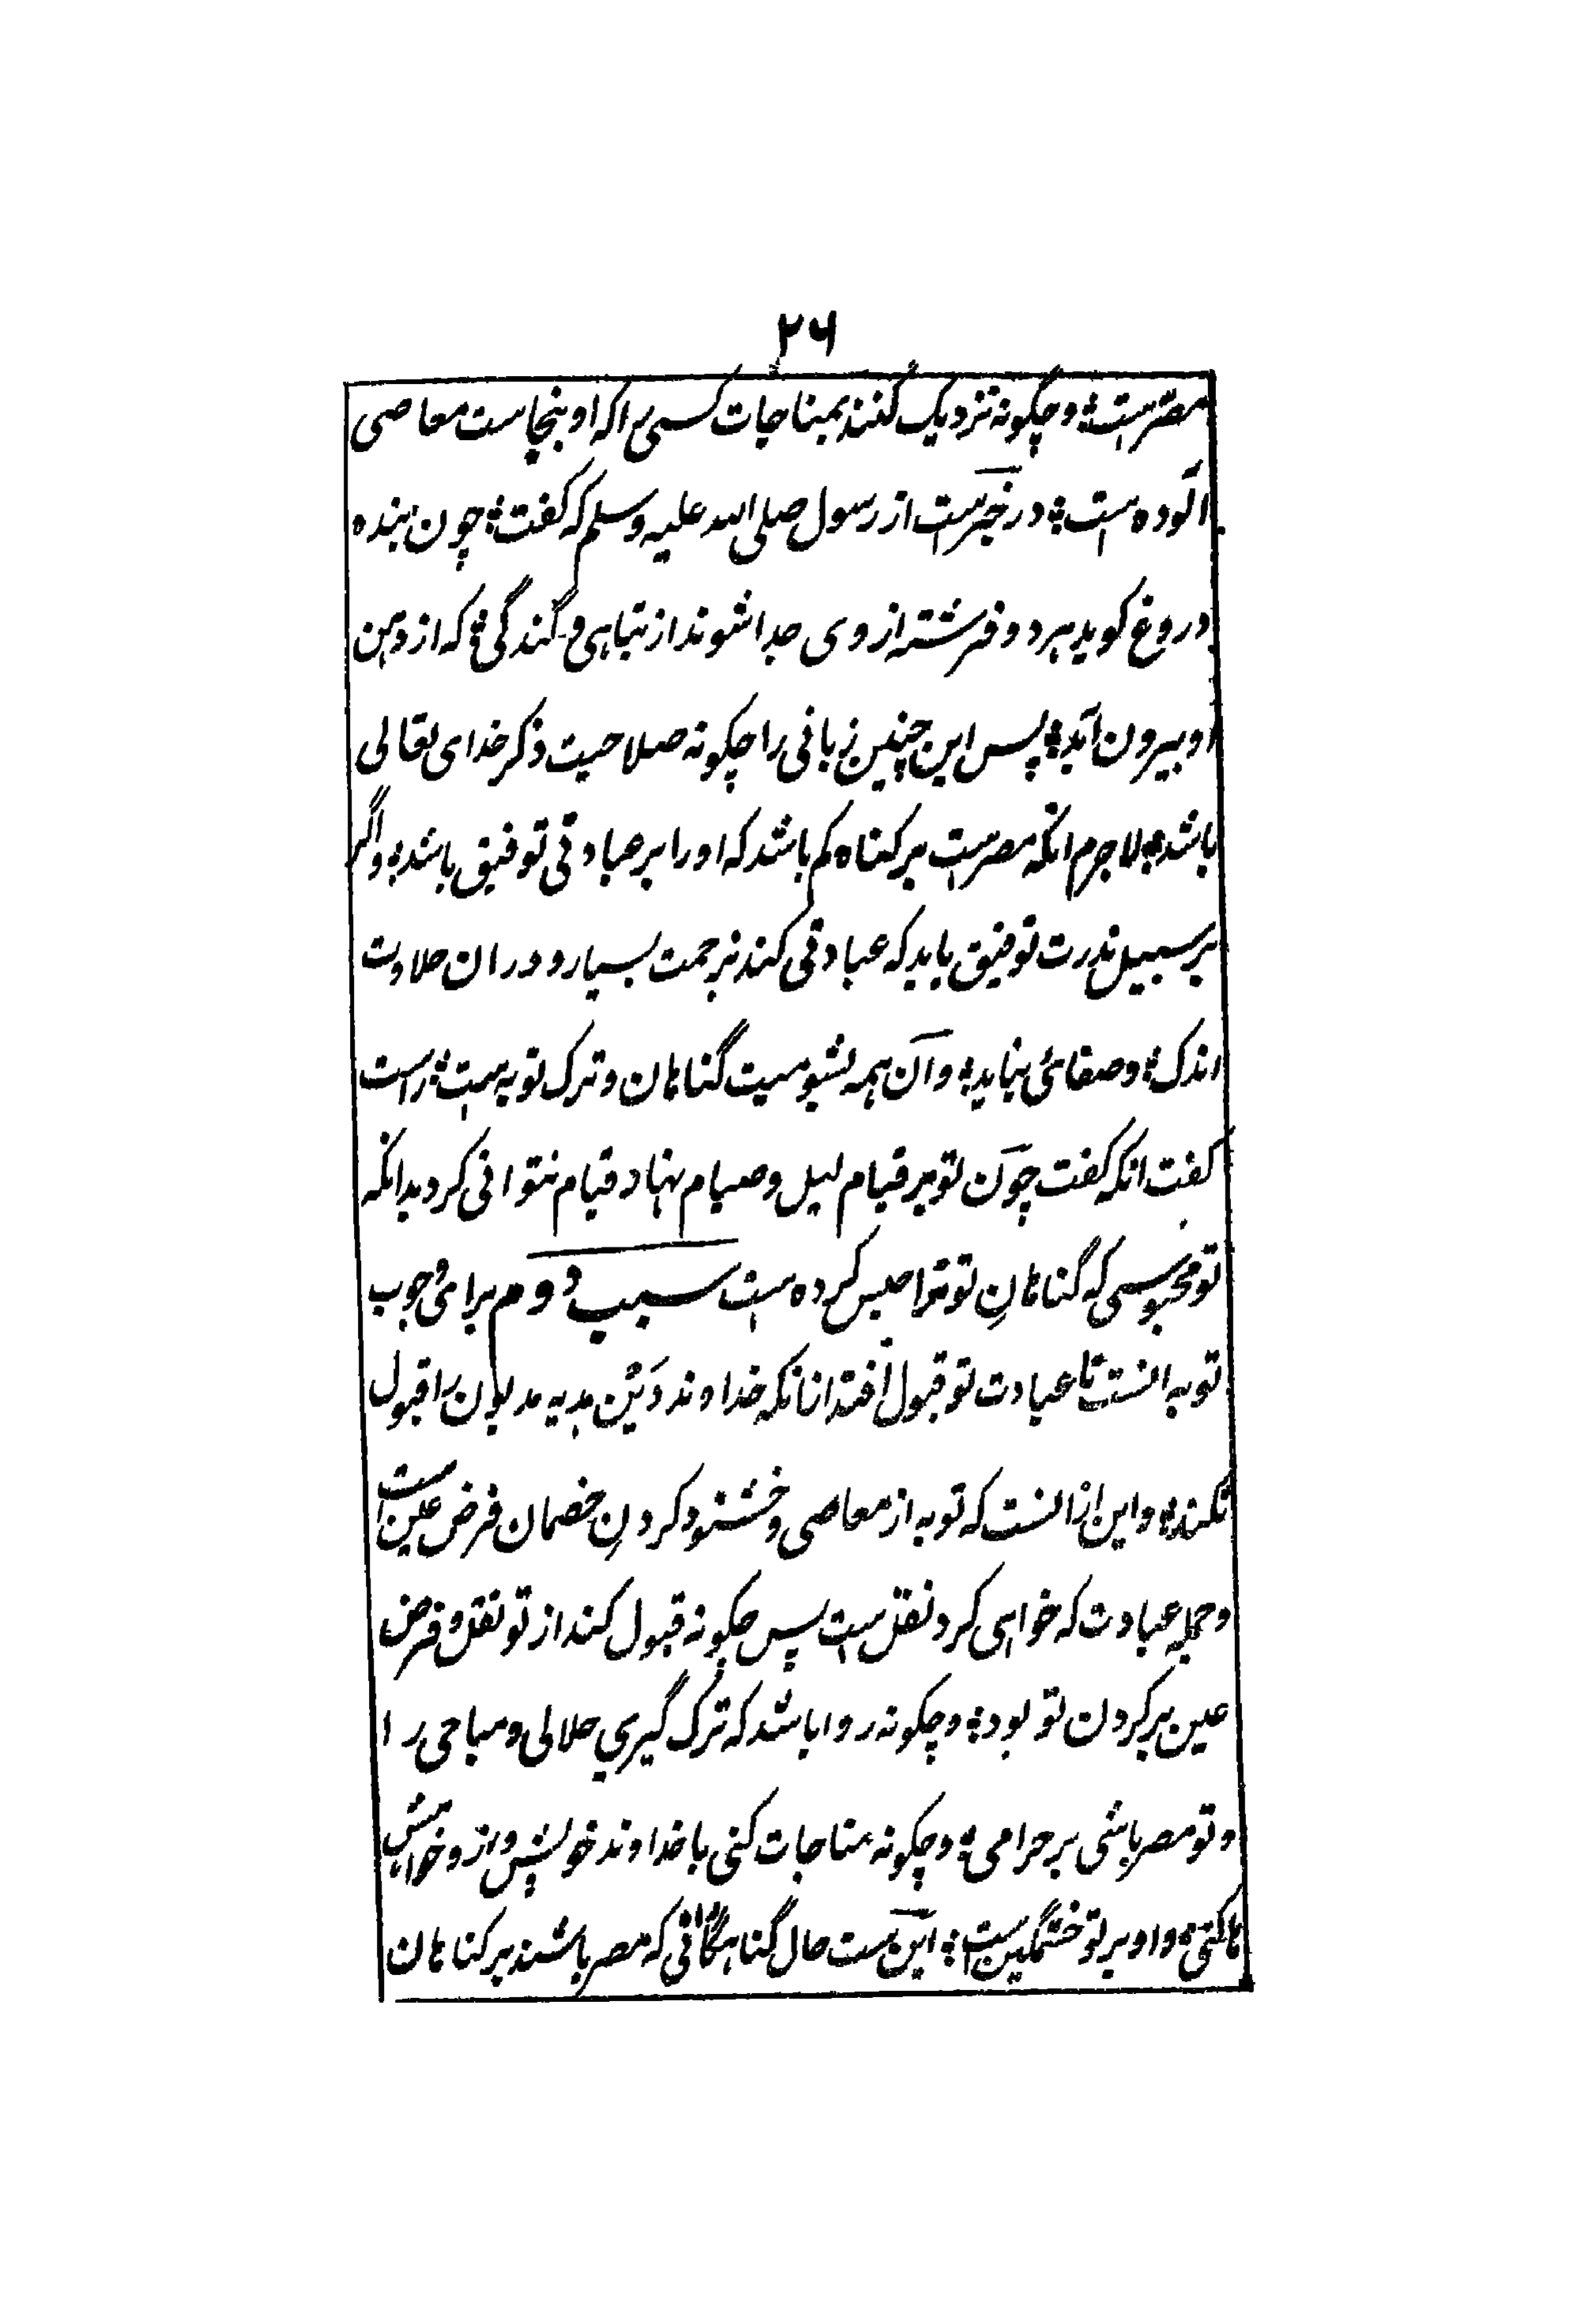 ۲۶
مصر ست؛ وچگونه نزدیک کنند بمناجات کسی را که او بنجاست معاصی
الوده است؛ در خبرست از رسول صلی الله علیه وسلم که گفت؛ چون بنده
دروغ کوید هر دو فرشته از وی جدا شوند از تباهی و گندگی؛ که از دهن
او بیرون آید؛ پس این چنین زبانی را چکونه صلاحیت ذکر خدای تعالی
باشد؛ لاجرم انکه مصرست بر کناه کم باشد که او را بر عبادتی توفیق باشد؛ واگر
بر سبیل ندرت توفیق یابد که عبادتی کند بزحمت بسیار و دران حلاوت
اندک؛ وصفائی نیابد؛ وآن همه بشومیت گناهان وترک توبه ست؛ راست
کفت انکه کفت چون تو بر قیام لیل وصیام نهار قیام نتوانی کرد بدانکه
تو محبوسی که گناهانِ تو ترا حبس کرده است سبب دوم برائ وجوب
توبه انست تا عبادت تو قبول افتد انانکه خداوند دَین هدیه مدیون را قبول
نکند؛ واین ازانست که توبه از معاصی وخشنود کردنِ خصمان فرض عین است
وجمله عبادت که خواهی کرد نفل ست پس چکونه قبول کند از تو نفل و فرض
عین بر کردن تو بود؛ وچکونه روا باشد که ترک گیری حلالی و مباحی را
وتو مصر باشی بر حرامی؛ وچکونه مناجات کنی با خداوند خویش واز و خواهش
ها کنی؛ واو بر تو خشمگین ست؛ این ست حال گناهگارانی که مصر باشند بر کناهان